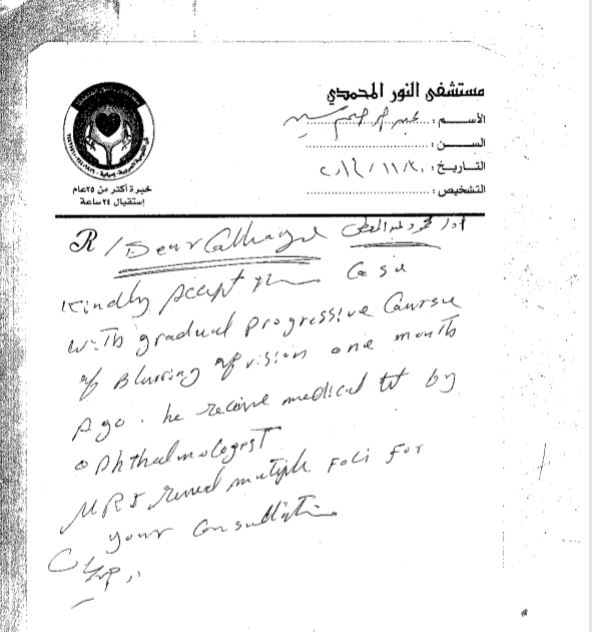 مستشفى النور المحمدي
الأســم :
الســن :
التـاريـخ : ٢٠١٢/١١/٢٠
التشخيص :
خبرة أكثر من ٢٥ عام
إستقبال ٢٤ ساعة
R/ Dear
Kindly Accept Case
with gradual progressive Course
of Blurring of vision one month
Ago . he receive medical ttt by
ophthalmologest
MRI reveal multiple Foci For
your Consultation